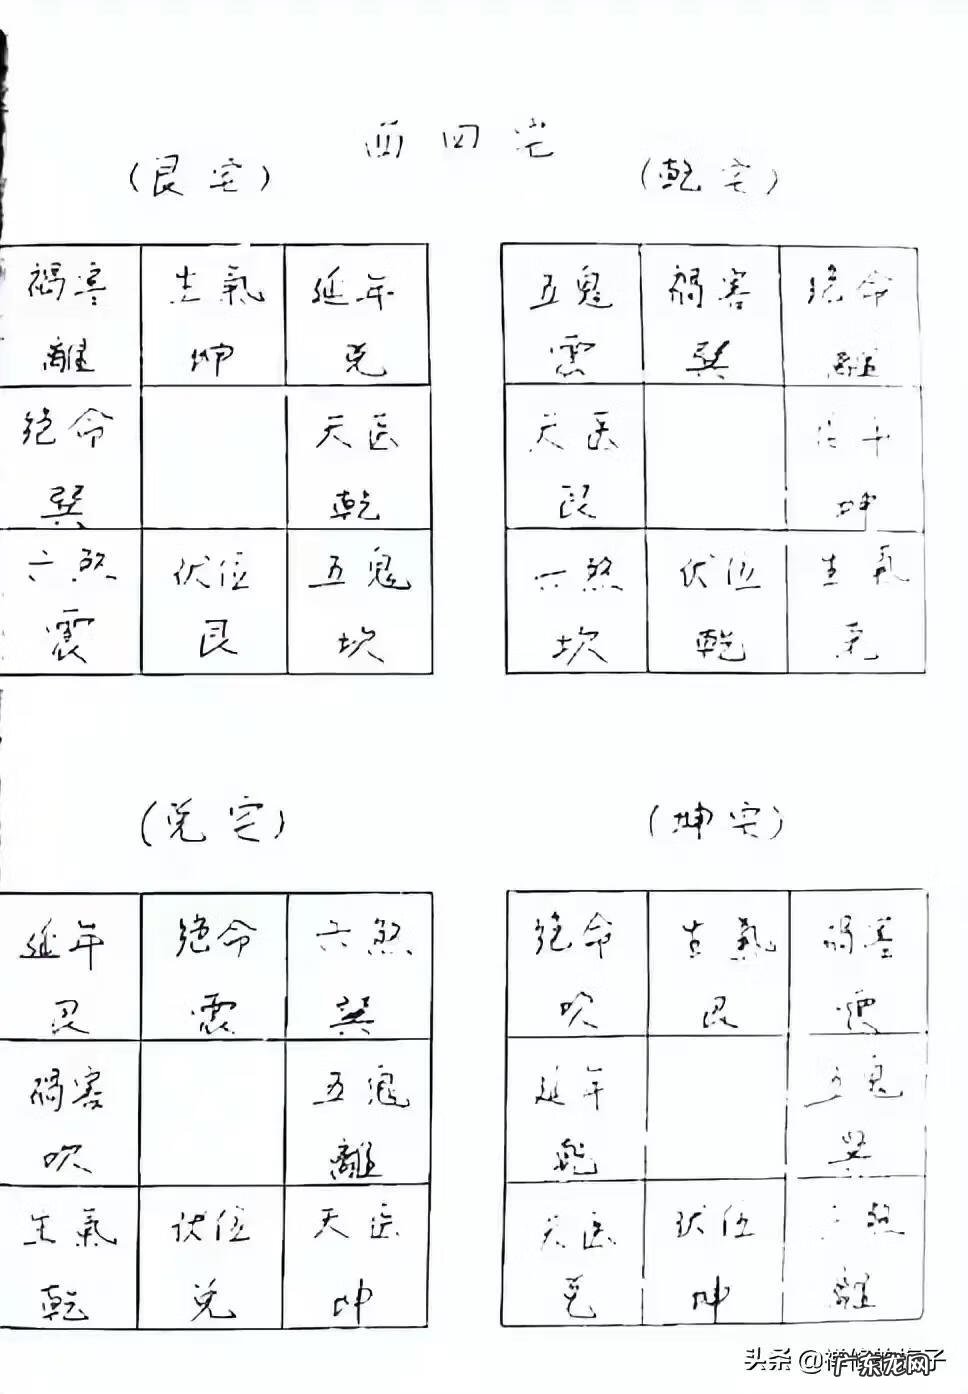 西四宅
(艮宅)
(乾宅)
禍害 生氣 延年
離 坤 兌
绝命 天医
巽 乾
六煞 伏位 五鬼
震 艮 坎
五鬼 禍害 绝命
震 巽 離
天医 延年
艮 坤
六煞 伏位 生氣
坎 乾 兌
(兌宅)
(坤宅)
延年 绝命 六煞
艮 震 巽
禍害 五鬼
坎 離
生氣 伏位 天医
乾 兌 坤
绝命 生氣 禍害
坎 艮 震
延年 五鬼
乾 巽
天医 伏位 六煞
兌 坤 離
头条 @
广东龙网